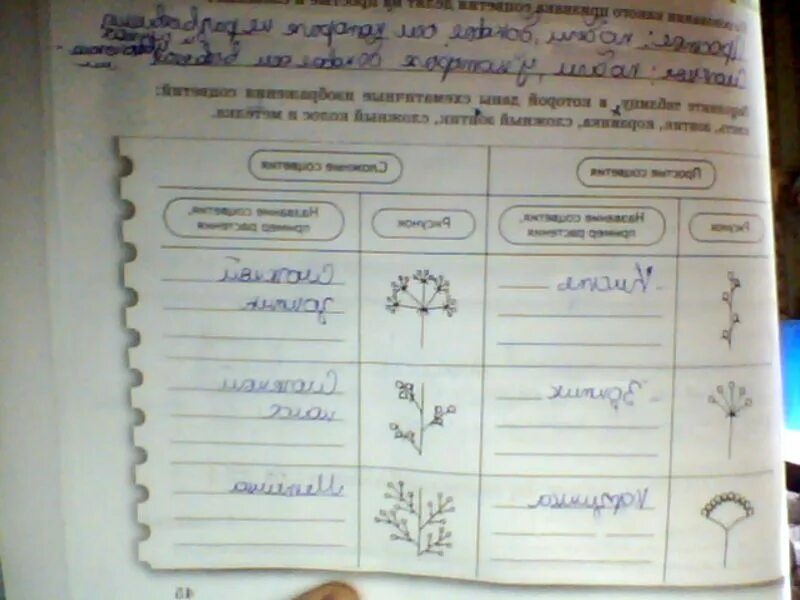 какого признака соцветия делят на простые и
Простые: побеги, боковые оси которые не
Сложные: побеги, у которых боковые оси
Заполните таблицу, в которой даны схематичные изображения соцветий:
зонтик, корзинка, сложный зонтик, сложный колос и метёлка.
Простые соцветия
Сложные соцветия
Рисунок
Название соцветия,
пример растения
Рисунок
Название соцветия,
пример растения
- Кисть
Сложный
зонтик
- Зонтик
Сложный
колос
Корзинка
Метёлка
45